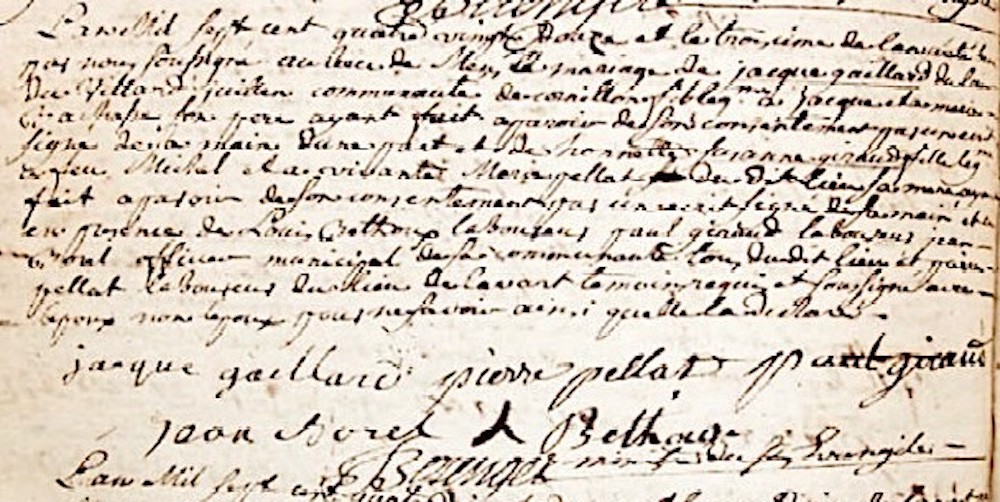 L'an Mil sept cent quatre vingt douze et le troisieme de
par nous soussigné au lieu de Mens le mariage de jacque gaillard du lieu
Du Villard juillen communauté de cornillon fils leg.me a jacque et a
son pere ayant fait aparoir de son consentement par un ecrit
signé de sa main d'une part et de honnette susanne giraud fille leg
a feu Michel et a vivante Marie pellat du dit lieu sa mere ayant
fait aparoir de son consentement par un ecrit signé de sa main et
en presence de Louis Bethoux laboureur paul giraud laboureur jean
Borel officier municipal de sa communauté tous du dit lieu et pierre
pellat laboureur du lieu de Lavart temoins requis et soussigné avec
l'epoux non l'epouse pour ne savoir ainsi quelle la declare.
jacque gaillard pierre pellat paul giraud
jean Borel Bethoux
Berenger ministre du St Evangile
L'an Mil sept cent